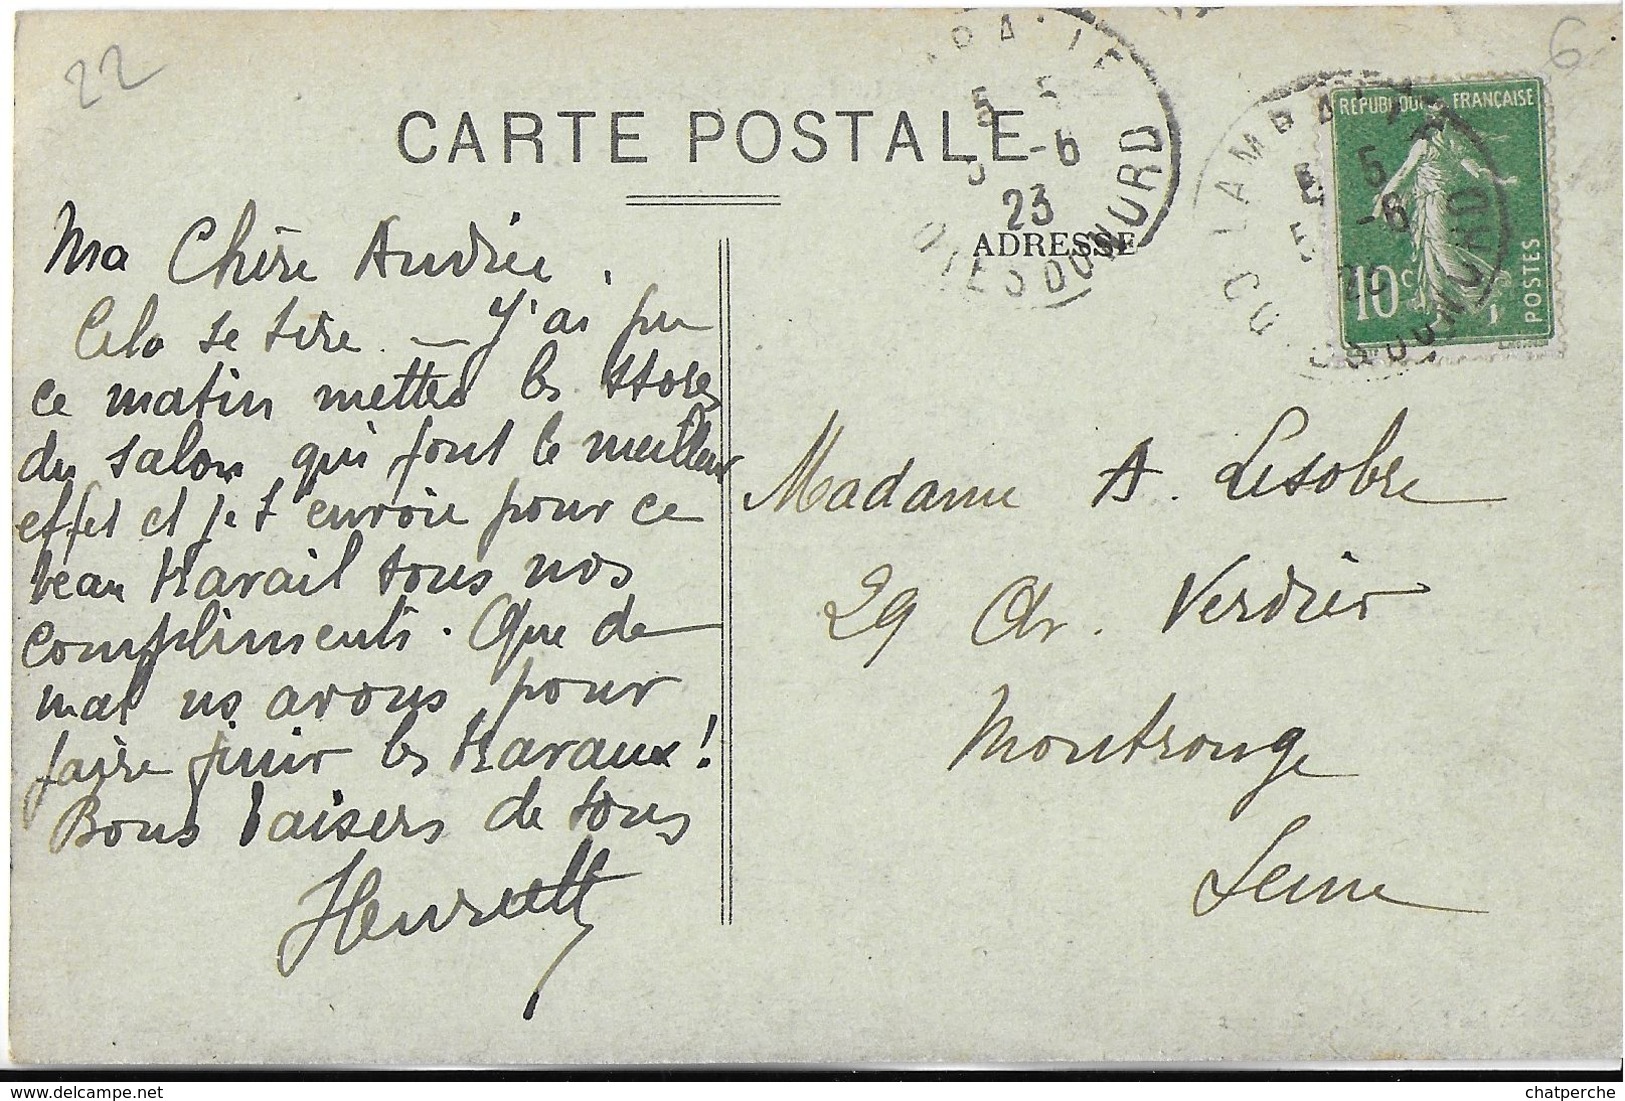 22
6
CARTE POSTALE
ADRESSE
5 5
5 -6
23
LAMBA
DU NORD
REPUBLIQUE FRANÇAISE
10c
POSTES
5
-6
Ma Chère Andrée.
Cela se tire. — J'ai pu
ce matin mettre les stores
du salon qui font le meilleur
effet et je t'envoie pour ce
beau travail tous nos
compliments. Que de
mal ns avons pour
faire finir les travaux !
Bons baisers de tous
Henriette
Madame A. Lesobre
29 Av. Verdier
Montrouge
Seine
chatperche